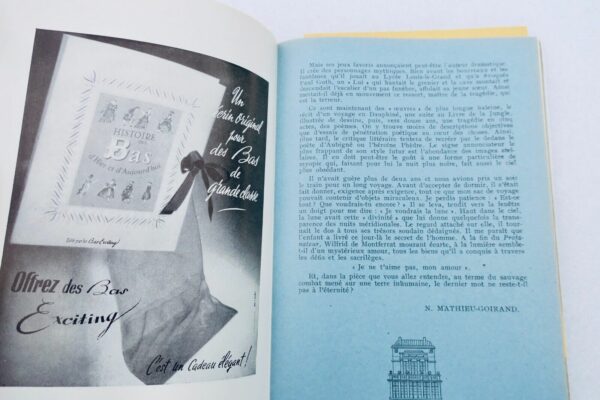 Un
écrin original
pour
des Bas
de grande classe
HISTOIRE
Bas
d'Hier et d'Aujourd'hui
Offrez des Bas
Exciting
C'est un Cadeau élégant !
Mais ses jeux favoris annonçaient peut-être l'auteur dramatique.
Il crée des personnages mythiques. Bien avant les bourreaux et les
fantômes qu'il jouait au Lycée Louis-le-Grand et qu'a évoqués
Paul Guth, un « Lui » qui hantait le grenier et la cave montait et
descendait l'escalier d'un pas funèbre, affolait sa jeune sœur. Ainsi
mettait-il déjà en mouvement le ressort, maître de la tragédie, qui
est la terreur.
Ce sont maintenant des « œuvres » de plus longue haleine, le
récit d'un voyage en Dauphiné, une suite au Livre de la Jungle,
illustrée de dessins, puis, vers douze ans, une tragédie en cinq
actes, des poèmes. On y trouve moins de descriptions objectives
que d'essais de pénétration poétique au cœur des choses. Ainsi,
plus tard, le critique littéraire tentera de recréer par le dedans le
poète d'Aubigné ou l'héroïne Phèdre. Le signe annonciateur le
plus frappant de son style futur est l'abondance des images stel-
laires. Il en doit peut-être le goût à une forme particulière de
myopie qui, faisant pour lui la nuit plus noire, fait aussi le ciel
plus obsédant.
Il n'avait guère plus de deux ans et nous avions pris un soir
le train pour un long voyage. Avant d'accepter de dormir, il s'était
fait donner, exigence après exigence, tout ce que mon sac de voyage
pouvait contenir d'objets miraculeux. Je perdis patience : « Est-ce
tout ! Que voudrais-tu encore ? » Il se leva, tendit vers la fenêtre
un doigt pour me dire : « Je voudrais la lune ». Haut dans le ciel,
la lune avait cette « divinité » que lui donne quelquefois la trans-
parence des nuits méridionales. Le regard attaché sur elle, il tour-
nait le dos à tous ses trésors soudain dédaignés. Il me paraît que
l'enfant a livré ce jour-là le secret de l'homme. A la fin du Profa-
nateur, Wilfrid de Montferrat mourant écarte, à la lumière semble-
t-il d'un mystérieux amour, tous les biens qu'il a conquis à travers
les défis et les sacrilèges.
« Je ne t'aime pas, mon amour ».
Et, dans la pièce que vous allez entendre, au terme du sauvage
combat mené sur une terre inhumaine, le dernier mot ne reste-t-il
pas à l'éternité ?
N. MATHIEU-GOIRAND.